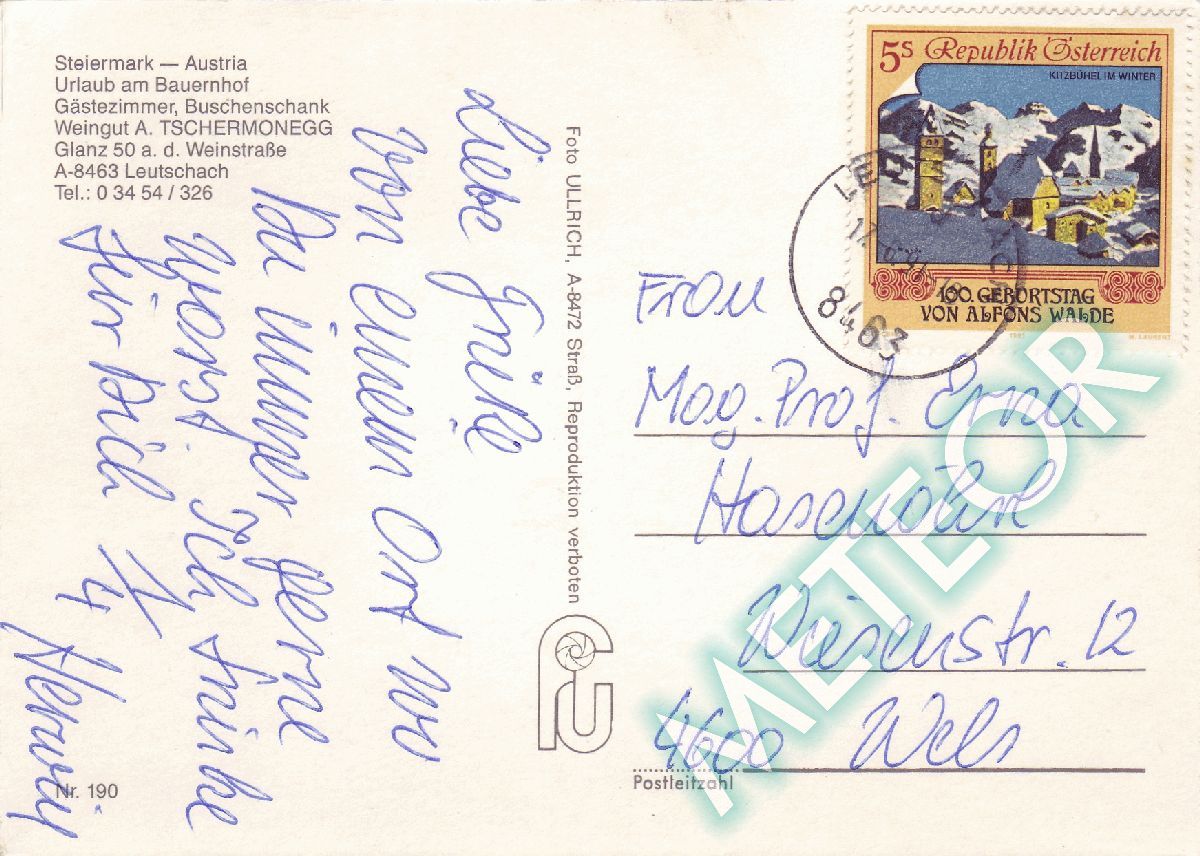 Steiermark — Austria
Urlaub am Bauernhof
Gästezimmer, Buschenschank
Weingut A. TSCHERMONEGG
Glanz 50 a. d. Weinstraße
A-8463 Leutschach
Tel.: 0 34 54 / 326
Liebe
von einem Ort wo
Du immer gerne
warst. Ich trinke
für Dich 1/4
Herwig
Nr. 190
Foto ULLRICH, A-8472 Straß, Reproduktion verboten
5S Republik Österreich
KITZBÜHEL IM WINTER
100. GEBORTSTAG
VON ALFONS WALDE
8463
Frau
Mag. Prof. Erna
Hasenöhrl
Wiesenstr. 12
4600 Wels
Postleitzahl
METEOR